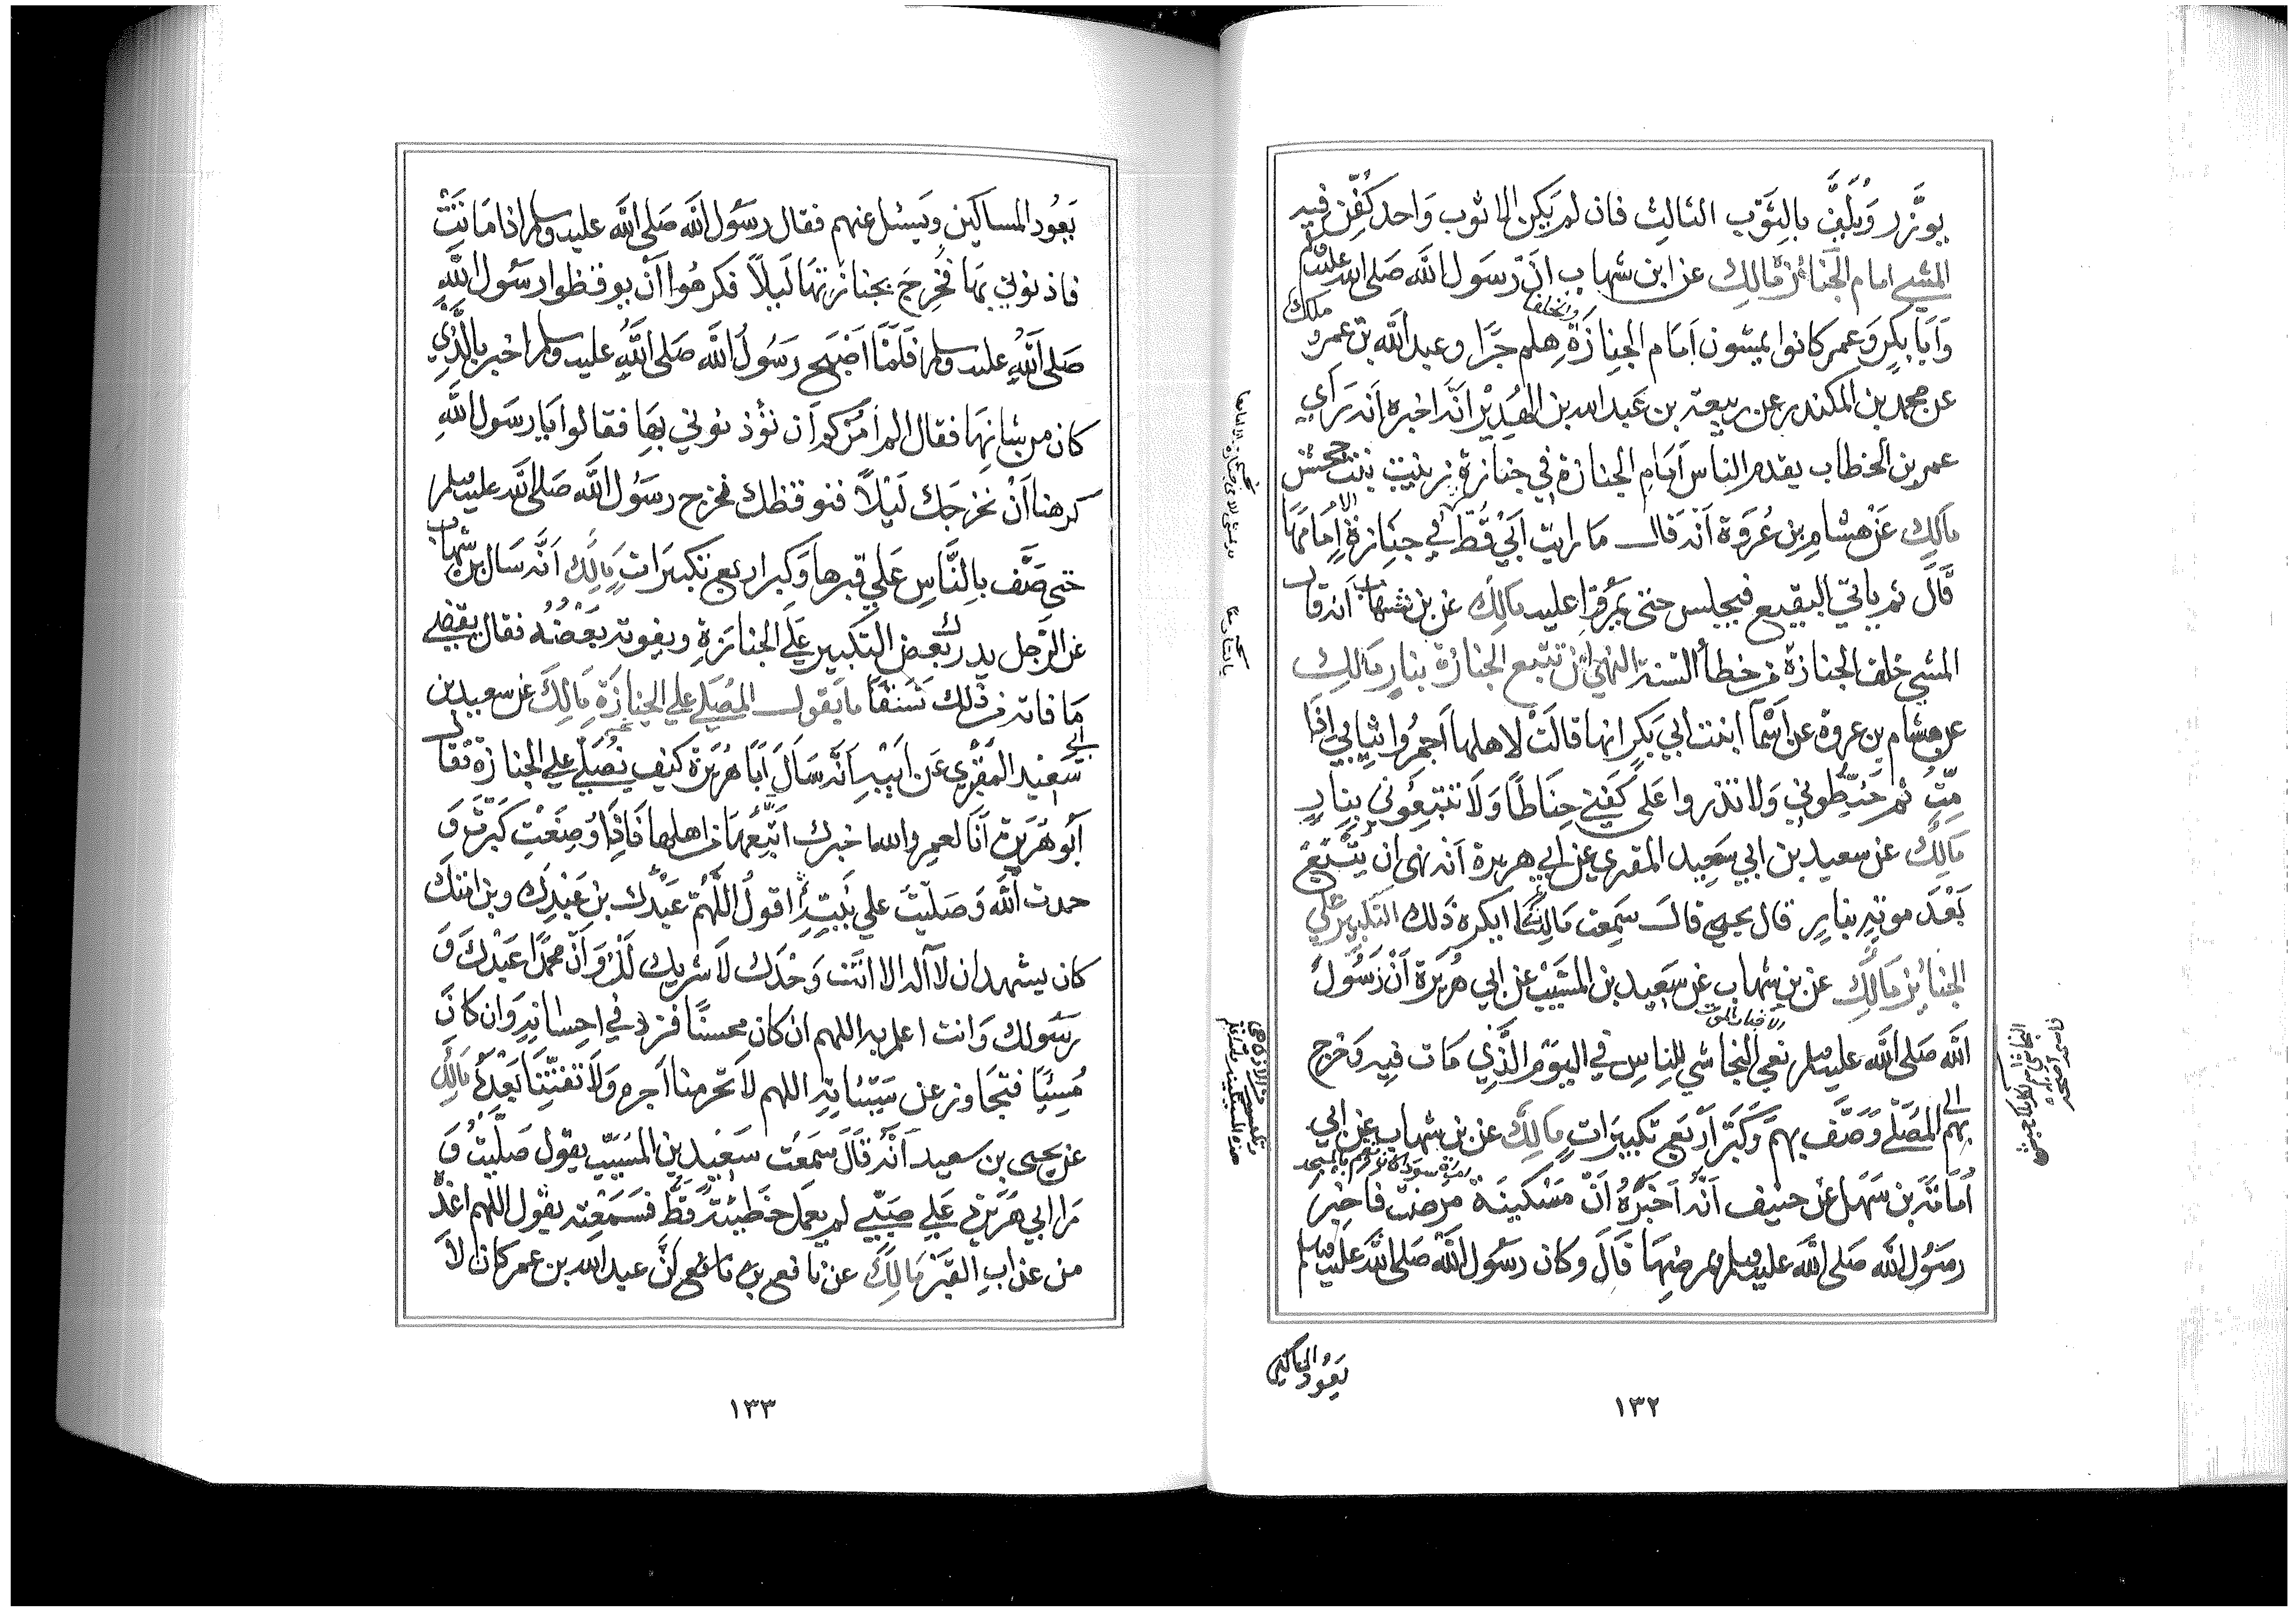 يوزر ويلف بالثوب الثالث فان لم يكن الا ثوب واحد كفن فيه
المشي امام الجنائز مالك عن ابن شهاب ان رسول الله صلى الله عليه وسلم
وابا بكر وعمر كانوا يمشون امام الجنازة والخلفا هلم جرا وعبد الله بن عمر ملك
عن محمد بن المكندر عن ربيعة بن عبد الله بن الهدير انه اخبره انه راي
عمر بن الخطاب يقدم الناس امام الجنازة في جنازة زينب بنت جحش
مالك عن هشام بن عروة انه قال ما رايت ابي قط في جنازة الا امامها
قال ثم ياتي البقيع فيجلس حتى يمروا عليه مالك عن بن شهاب انه قال
المشي خلف الجنازة من خطأ السنة النهي ان تتبع الجنازة بنار مالك
عن هشام بن عروة عن اسما ابنت ابي بكر انها قالت لاهلها اجمروا ثيابي اذا
مت ثم حنطوني ولا تذروا على كفني حناطا ولا تتبعوني بنار
مالك عن سعيد بن ابي سعيد المقبري عن ابي هريرة انه نهى ان يتبع
بعد موته بنار قال يحيى قال سمعت مالكا يكره ذلك التكبير على
الجنائز مالك عن بن شهاب عن سعيد بن المسيب عن ابي هريرة ان رسول
الله صلى الله عليه وسلم نعى النجاشي للناس في اليوم الذي مات فيه وخرج
بهم الى المصلى وصف بهم وكبر اربع تكبيرات مالك عن بن شهاب عن ابي
امامة بن سهل عن حنيف انه اخبره ان مسكينة مرضت فاخبر
رسول الله صلى الله عليه وسلم بمرضها قال وكان رسول الله صلى الله عليه وسلم
يعود المساكين
١٣٢
يعود المساكين ويسئل عنهم فقال رسول الله صلى الله عليه وسلم اذا ماتت
فاذنوني بها فخرج بجنازتها ليلا فكرهوا ان يوقظوا رسول الله
صلى الله عليه وسلم فلما اصبح رسول الله صلى الله عليه وسلم اخبر بالذي
كان من شانها فقال الم امركم ان تؤذنوني بها فقالوا يا رسول الله
كرهنا ان نخرجك ليلا فنوقظك فخرج رسول الله صلى الله عليه وسلم
حتى صف بالناس على قبرها وكبر اربع تكبيرات مالك انه سال بن شهاب
عن الرجل يدرك بعض التكبير على الجنازة ويفوته بعضه فقال يقضي
ما فاته من ذلك ما يقول المصلي على الجنازة مالك عن سعيد بن
ابي سعيد المقبري عن ابيه انه سال ابا هريرة كيف نصلي على الجنازة فقال
ابو هريرة انا لعمر والله اخبرك اتبعها من اهلها فاذا وضعت كبرت و
حمدت الله وصليت على نبيه ثم اقول اللهم عبدك بن عبدك وبن امتك
كان يشهد ان لا اله الا انت وحدك لا شريك لك وان محمدا عبدك و
رسولك وانت اعلم به اللهم ان كان محسنا فزد في احسانه وان كان
مسئيا فتجاوز عن سيئاته اللهم لا تحرمنا اجره ولا تفتنا بعده مالك
عن يحيى بن سعيد انه قال سمعت سعيد بن المسيب يقول صليت و
را ابي هريرة على صبي لم يعمل خطيئة قط فسمعته يقول اللهم اعذه
من عذاب القبر مالك عن نافع ان عبد الله بن عمر كان لا
١٣٣